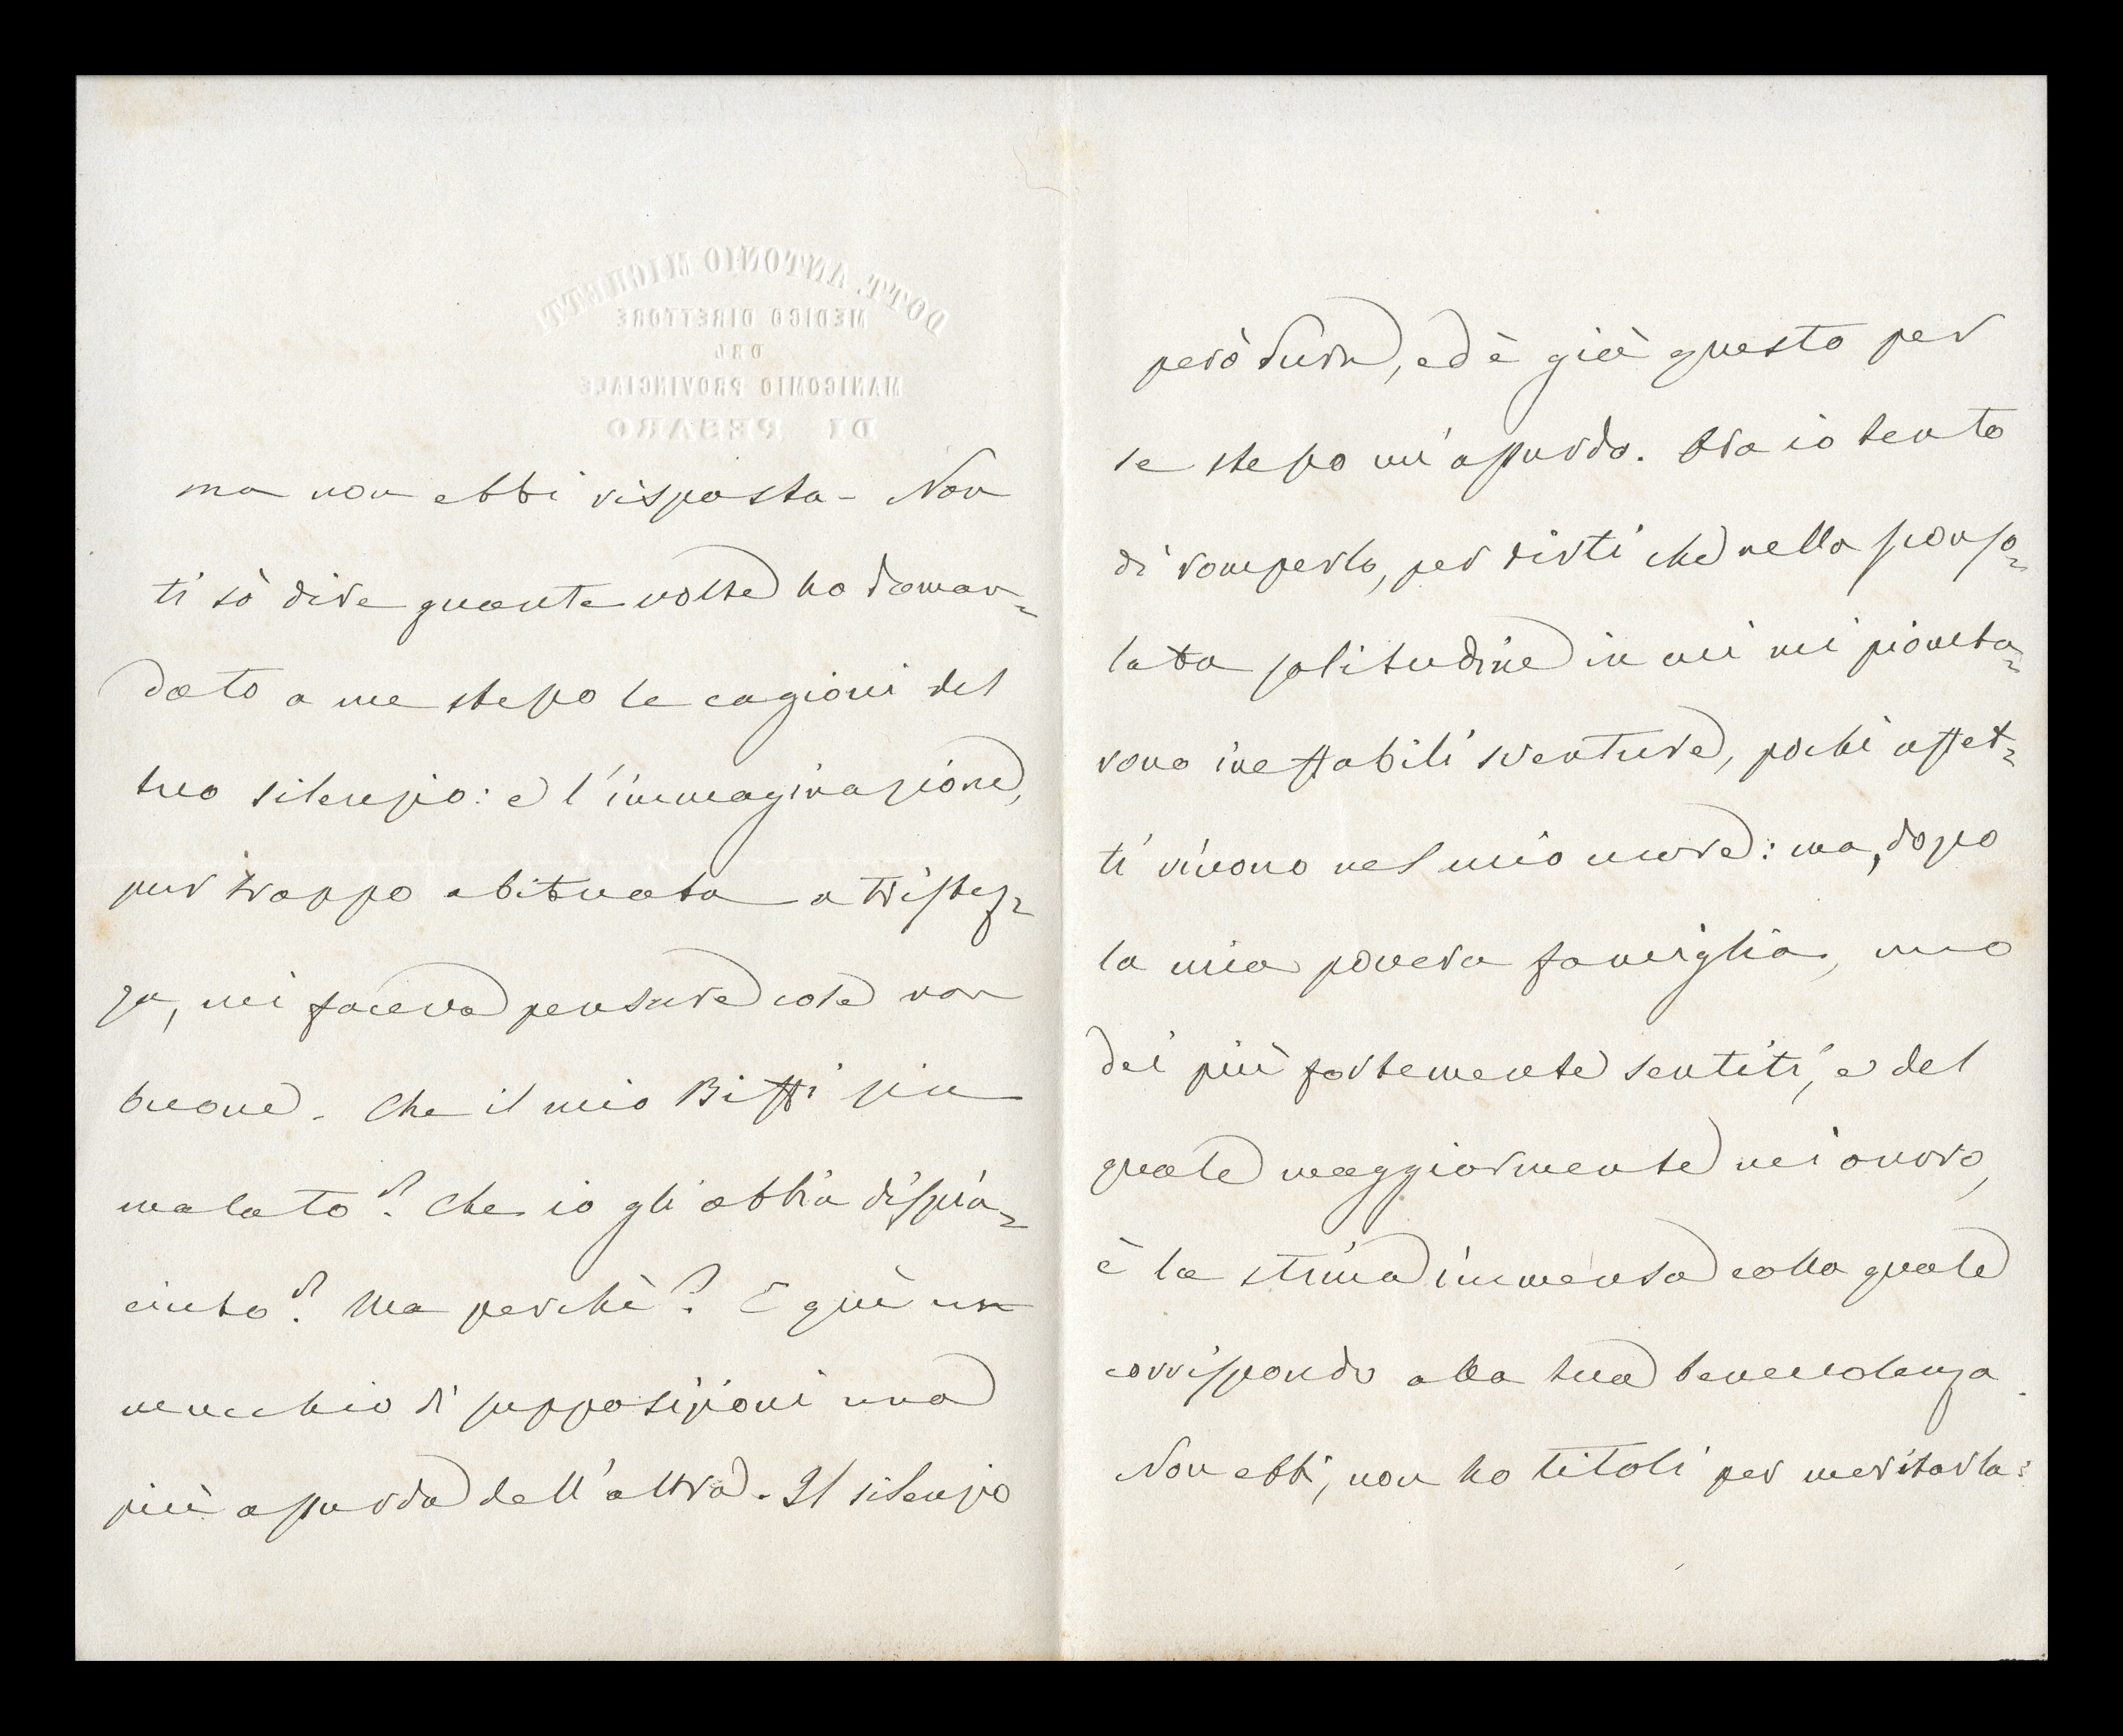 DOTT. ANTONIO MICHETTI
MEDICO DIRETTORE
DEL
MANICOMIO PROVINCIALE
DI PESARO
ma non ebbi risposta - Non
ti sò dire quante volte ho doman=
dato a me stesso le cagioni del
tuo silenzio: e l'immaginazione,
pur troppo abituata a tristez=
za, mi faceva pensare cose non
buone. Che il mio Biffi sia
malato? Che io gli abbia dispia=
ciuto? Ma perchè? E quì un
mucchio di supposizioni una
più assurda dell'altra. Il silenzio
però dura, ed è già questo per
se stesso un'assurdo. Ora io sento
di romperlo, per dirti che nella sconso=
lata solitudine in cui mi piomba=
rono ineffabili sventure, pochi affet=
ti vivono nel mio cuore: ma, dopo
la mia povera famiglia, uno
dei più fortemente sentiti, e del
quale maggiormente mi onoro,
è la stima immensa colla quale
corrispondo alla tua benevolenza.
Non ebbi, non ho titoli per meritarla: